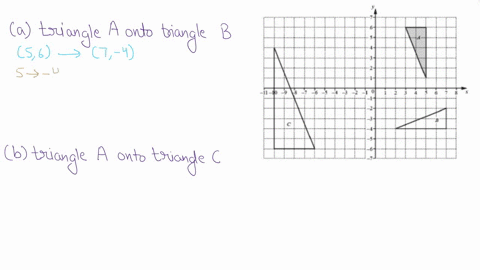 (a) triangle A onto triangle B
(5,6) → (7,-4)
5 → -4
(b) triangle A onto triangle C
y
7
6
5
4
3
2
1
-11 -10 -9 -8 -7 -6 -5 -4 -3 -2 -1 0 1 2 3 4 5 6 7 8 x
-1
-2
-3
-4
-5
-6
-7
A
B
C